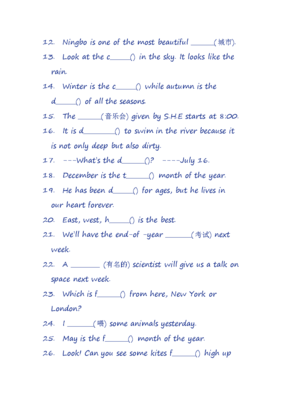 12. Ningbo is one of the most beautiful ______(城市).
13. Look at the c_____() in the sky. It looks like the
rain.
14. Winter is the c_____() while autumn is the
d_____() of all the seasons.
15. The ______(音乐会) given by S.H.E starts at 8:00.
16. It is d______() to swim in the river because it
is not only deep but also dirty.
17. ---What's the d_____()? ----July 16.
18. December is the t_____() month of the year.
19. He has been d_____() for ages, but he lives in
our heart forever.
20. East, west, h_____() is the best.
21. We'll have the end-of -year _______(考试) next
week.
22. A ________ (有名的) scientist will give us a talk on
space next week.
23. Which is f_____() from here, New York or
London?
24. I ______(喂) some animals yesterday.
25. May is the f_____() month of the year.
26. Look! Can you see some kites f______() high up